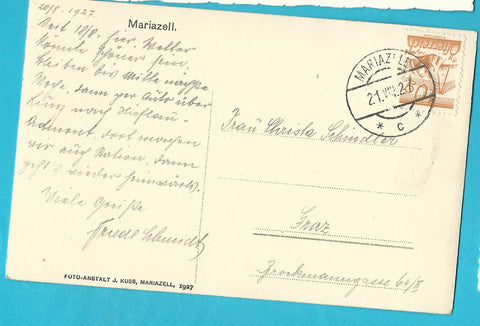 20/8. 1927.
Mariazell.
Seit 18/8. hier. Wetter
könnte schöner sein.
Bleiben bis Mitte nächster
Woche, dann per Auto über
nach Hieflau-
Admont, dort machen
wir auf Station, dann
geht's wieder heimwärts.
Viele Grüße
Friedl Schmidt
FOTO-ANSTALT J. KUSS, MARIAZELL, 1927
Österreich
MARIAZELL
21.VIII.27
* c *
Frau Christa Schindler
Graz
Brockmanngasse 62/II